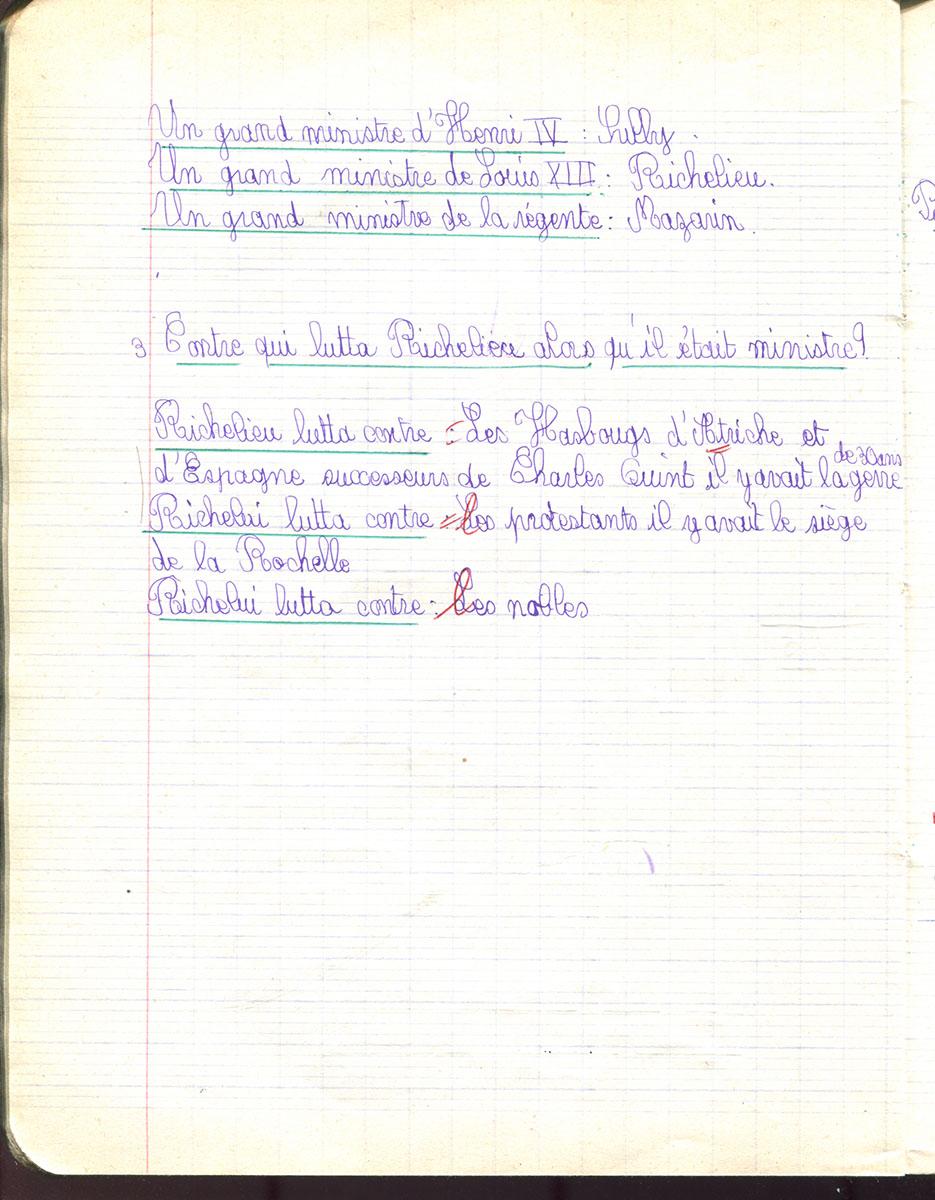 Un grand ministre d'Henri IV : Sully.
Un grand ministre de Louis XIII : Richelieu.
Un grand ministre de la régente : Mazarin.
3 Contre qui lutta Richelieu alors qu'il était ministre ?
Richelieu lutta contre : Les Hasbougs d'Atriche et
de 30 ans
d'Espagne successeurs de Charles Quint il y avait la gerre
Richelui lutta contre : Les protestants il y avait le siège
de la Rochelle
Richelui lutta contre : Les nobles